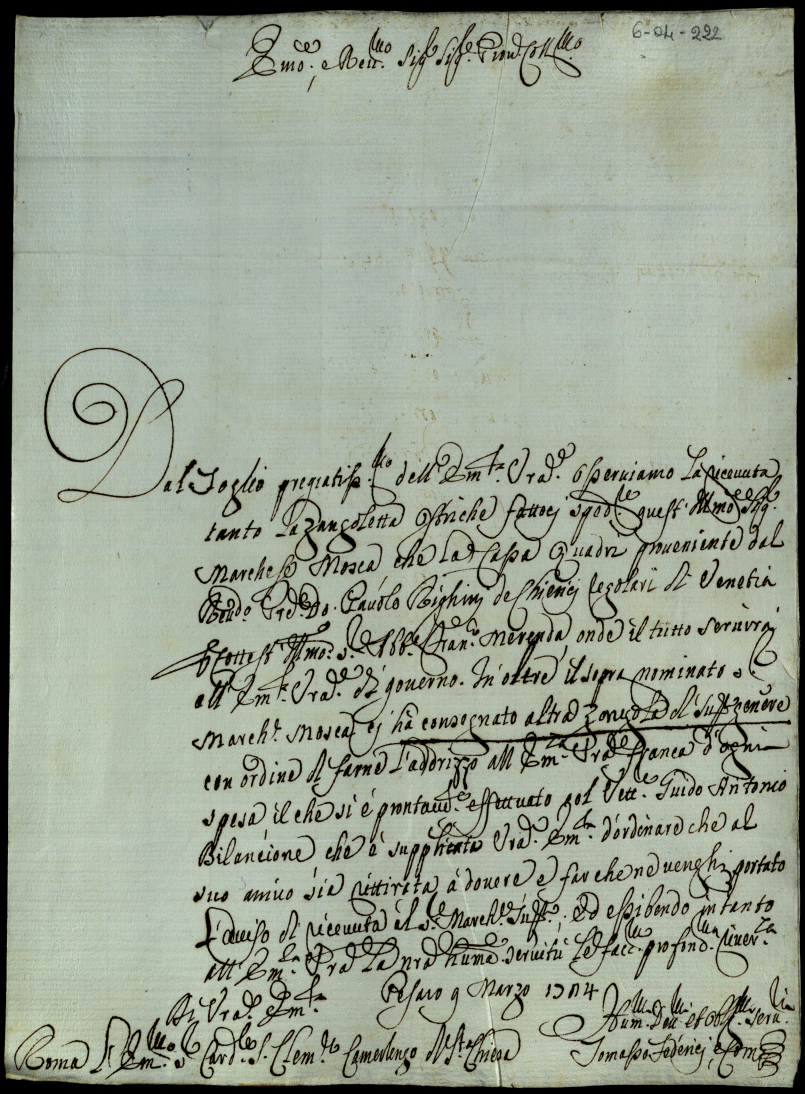 6-04-222
Em̃o, e Reu.mo Sig.r Sig.re Pron Coll.mo
Dal Foglio pregiatiss.mo dell'Em.za Vrã osseruiamo la riceuuta
tanto la Zangoletta Ostriche fattoci quest' Ill.mo Sig.
Marchese Mosca che la Cassa Quadri proueniente dal
Reu.do Pre. Do. Pauolo Righini de Chierici Regolari di Venetia
Illmo. S. Abb. Fran.o Merenda onde il tutto seruirà
all' Em.za Vrã di gouerno. In oltre il sopra nominato S.
March.e Mosca ci hà consegnato altra Zangola di suss. genere
con ordine di farne l'addrizzo all' Em.za Vrã franca d'ogni
spesa il che si è prontam.te effettuato col Vett.e Guido Antonio
Bilancione che è supplicata Vrã Em.za d'ordinare che al
suo arriuo sia rittirata à douere e far che ne uenghi portato
l'auuiso di riceuuta al S. March.e suss.o, ed essibendo intanto
all' Em.za Vrã la nrã hum.e seruitù le facc. profond. riuer.za
Di Vrã Em.za Pesaro 9 Marzo 1784
Hum. Deu. et Obl. Seru.
Roma L' Em.mo S. Card.le S. Clem.te Camerlengo di S.ta Chiesa Tomasso Federici, e Com